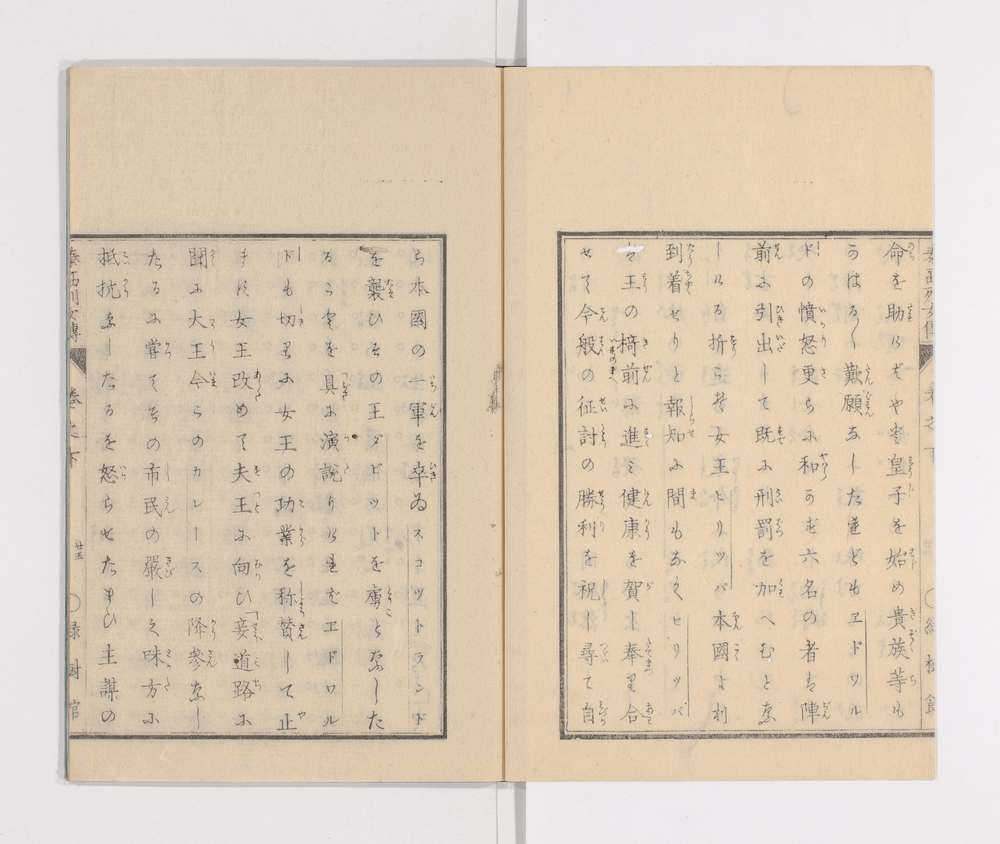 命を助けずや宏皇子を始め貴族等も
うはる〱歎願なしたれどもエドワル
ドの憤怒更らに和らず六名の者を陣
前に引出して既に刑罰を加へむとな
しける折ら女王ヒリッパ本國より
到着せりと報知に間もなくヒリッパ
女王の椅前に進み健康を賀し奉り合
せて今般の征討の勝利を祝し尋で自
ら本國の一軍を卒ゐスコットランド
を襲ひ其の王ダビットを虜となした
るを具に演説りければエドワル
ドも切りに女王の功業を称賛して止
まず女王改めて夫王に向ひ「妾道路に
聞に大王今らのカレースの降参なし
たるに甞てその市民の嚴しく味方に
抵抗なしたるを怒らせたまひ主謀の
泰西列女傳
卷之下
廿五